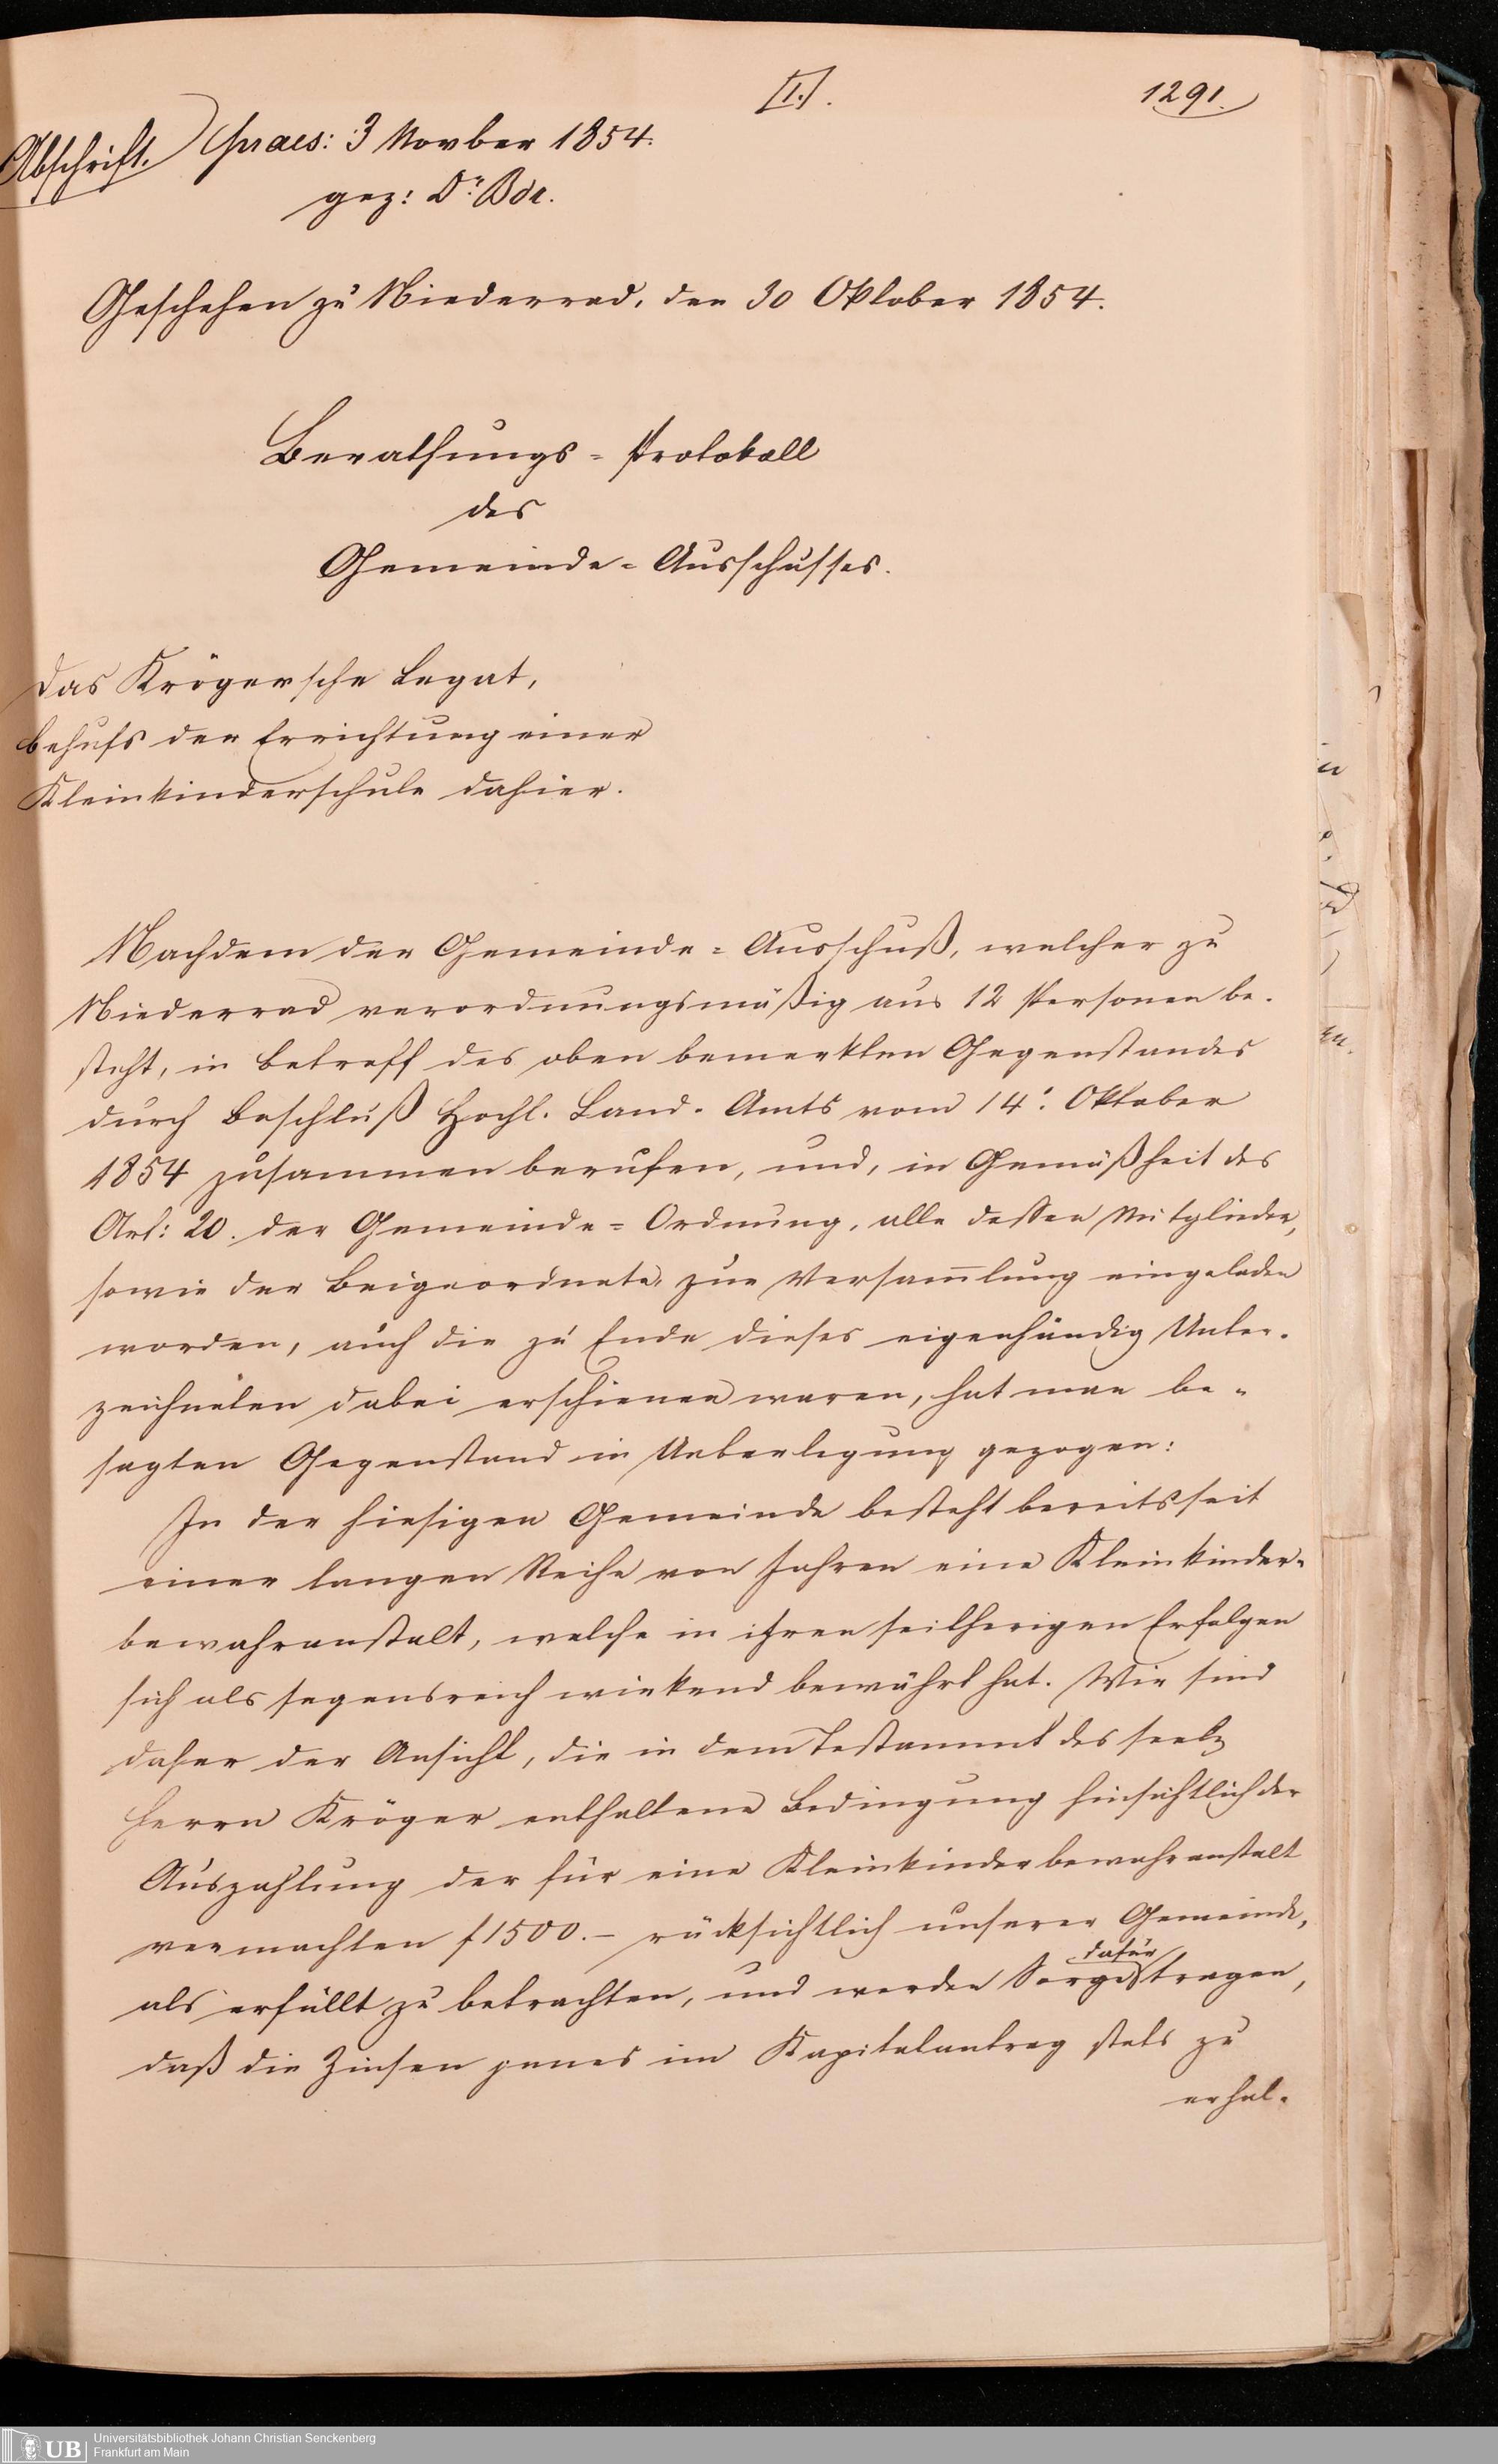 [1.].
1291.
Abschrift. praes: 3 Novber 1854.
gez: Dr. Bdr.
Geschehen zu Niederrad, den 30 Oktober 1854.
Berathungs-Protokoll
des
Gemeinde-Ausschusses.
Das Krögersche Legat,
behufs der Errichtung einer
Kleinkinderschule dahier.
Nachdem der Gemeinde-Ausschuß, welcher zu
Niederrad verordnungsmäßig aus 12 Personen be-
steht, in Betreff des oben bemerkten Gegenstandes
durch Beschluß Hochl. Land-Amts vom 14t. Oktober
1854 zusammen berufen, und, in Gemäßheit des
Art: 20. der Gemeinde-Ordnung, alle dessen Mitglieder,
sowie der Beigeordnete, zur Versam̄lung eingeladen
worden, auch die zu Ende dieses eigenhändig Unter-
zeichneten dabei erschienen waren, hat man be-
sagten Gegenstand in Ueberlegung gezogen:
In der hiesigen Gemeinde besteht bereits seit
einer langen Reihe von Jahren eine Kleinkinder-
bewahranstalt, welche in ihren seitherigen Erfolgen
sich als segensreich wirkend bewährt hat. Wir sind
daher der Ansicht, die in dem Testament des seelg
Herrn Kröger enthaltene Bedingung hinsichtlich der
Auszahlung der für eine Kleinkinderbewahranstalt
vermachten f 1500.- rücksichtlich unserer Gemeinde,
als erfüllt zu betrachten, und werden Sorge dafür tragen,
daß die Zinsen jenes im Kapitalantrag stets zu
erhal-
Universitätsbibliothek Johann Christian Senckenberg
Frankfurt am Main
UB